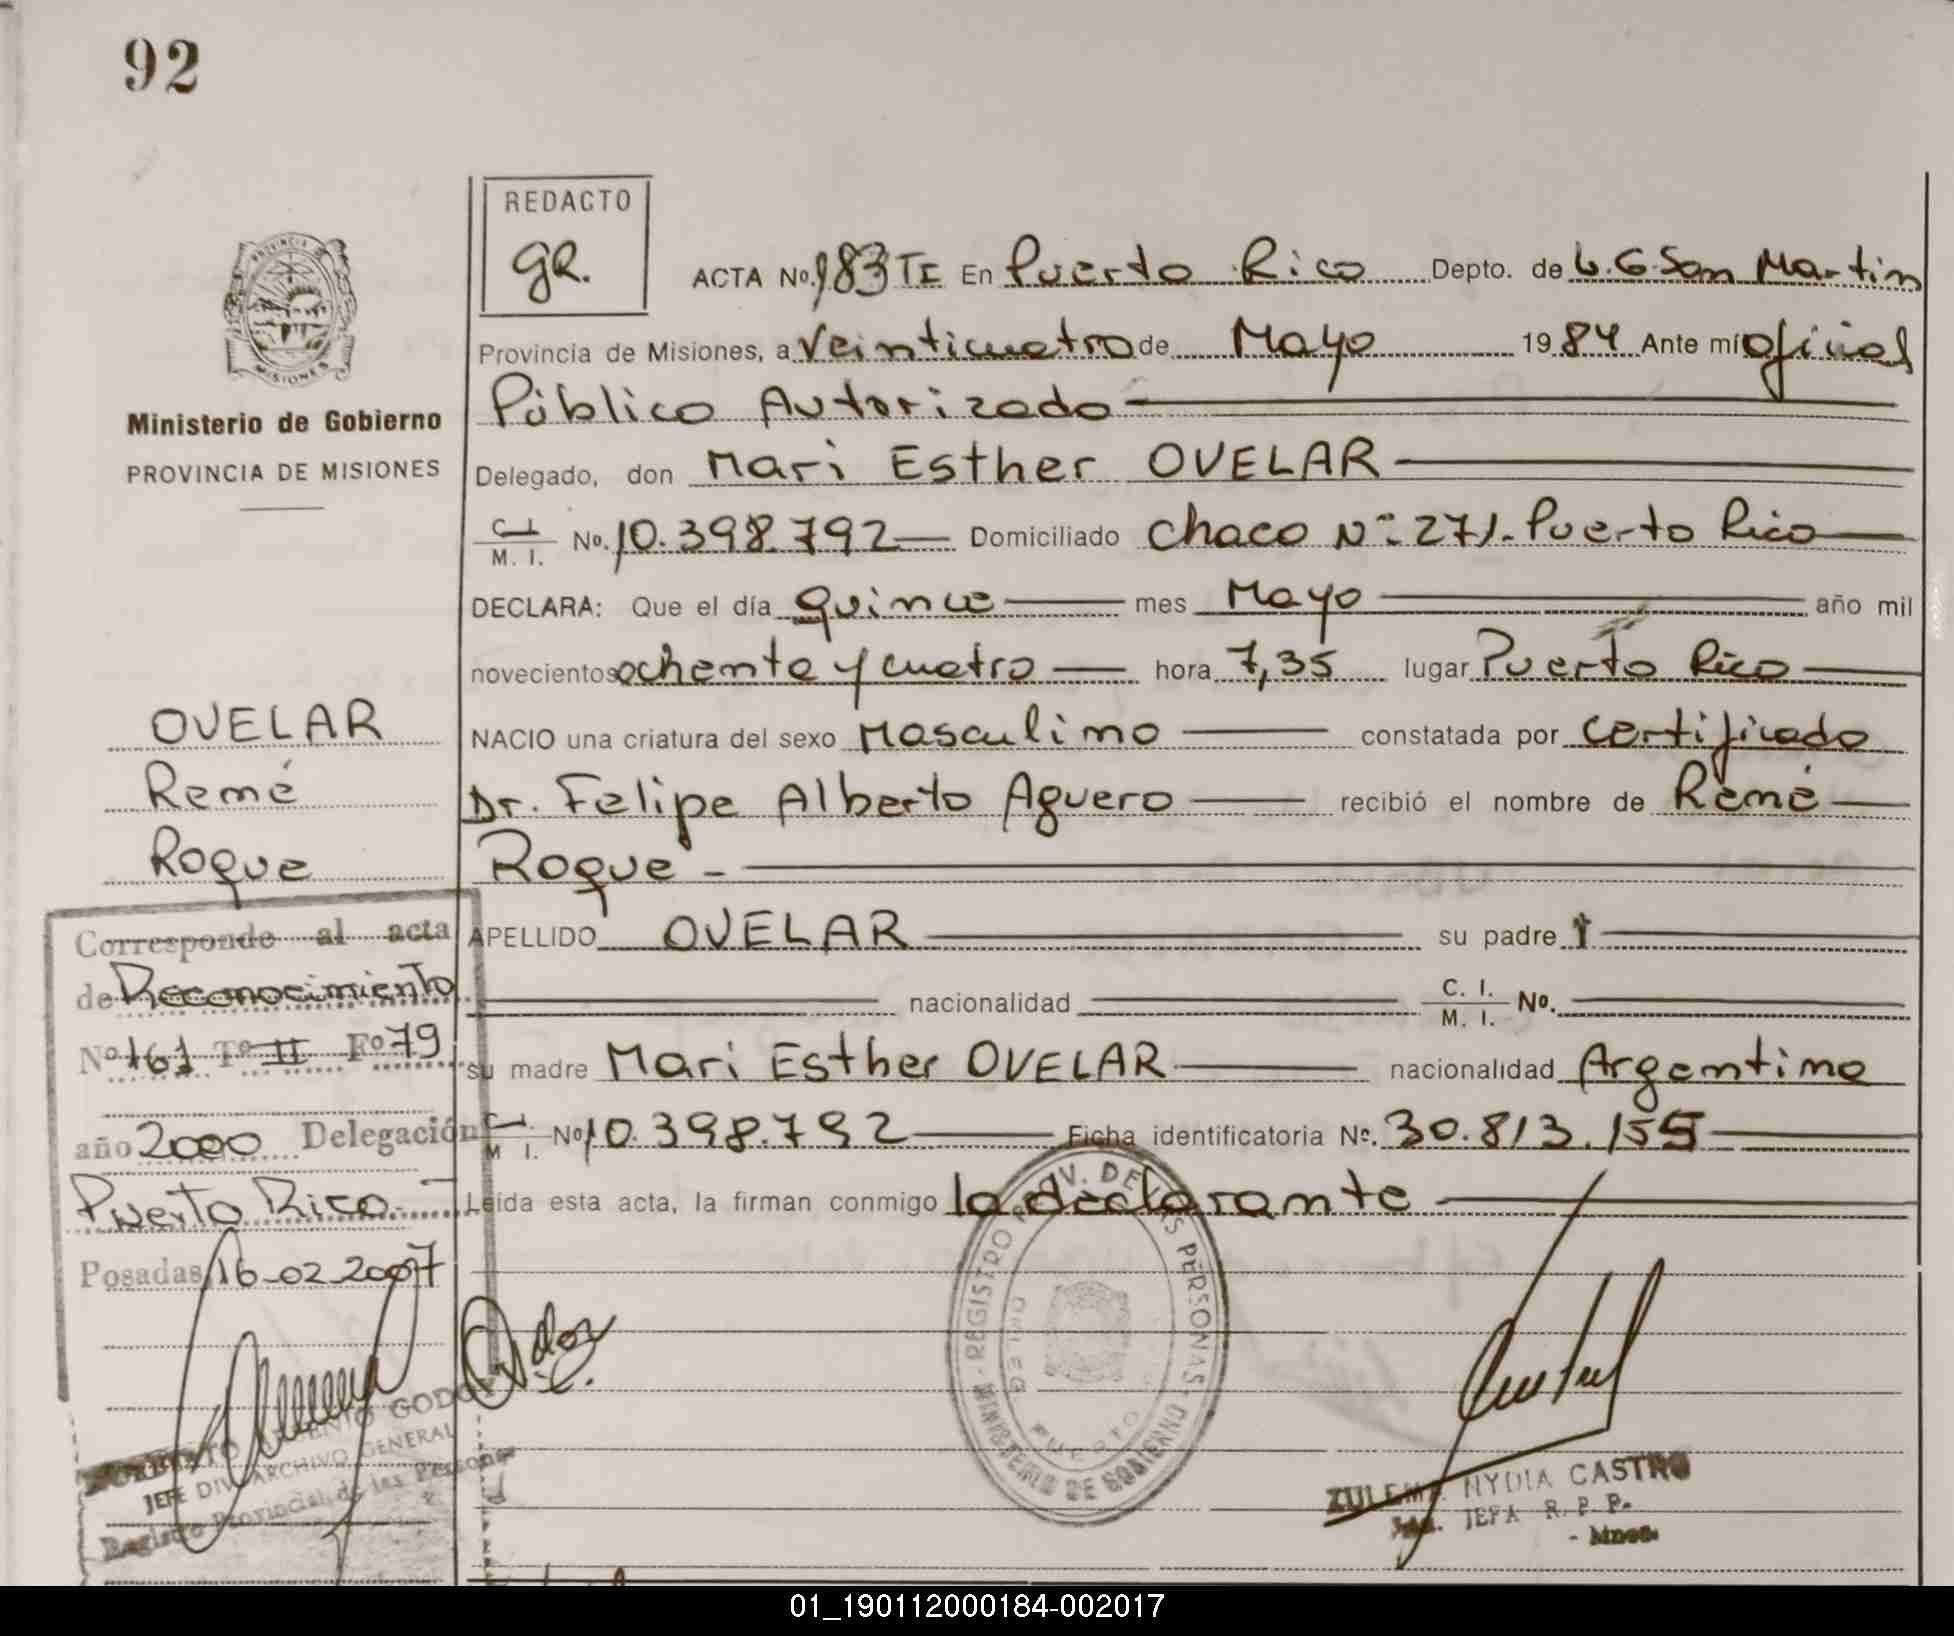 92
REDACTO
gR.
ACTA No. 183 TE En Puerto Rico Depto. de L.G. San Martin
Provincia de Misiones, a veinticuatro de Mayo 1984 Ante mí oficial
Público Autorizado
Delegado, don Mari Esther OVELAR
C. I.
M. I. No. 10.398.792 Domiciliado Chaco Nº: 271. Puerto Rico
DECLARA: Que el día quince mes Mayo año mil
novecientos ochenta y cuatro hora 7,35 lugar Puerto Rico
NACIO una criatura del sexo Masculino constatada por certificado
Dr. Felipe Alberto Aguero recibió el nombre de René
Roque -
APELLIDO OVELAR su padre
nacionalidad C. I.
M. I. No.
su madre Mari Esther OVELAR nacionalidad Argentina
C. I.
M I. No 10.398.792 Ficha identificatoria No. 30.813.155
Leída esta acta, la firman conmigo la declarante
PROVINCIA DE
MISIONES
Ministerio de Gobierno
PROVINCIA DE MISIONES
OVELAR
René
Roque
Corresponde al acta
de Reconocimiento
Nº 161 Tº II Fº 79
año 2000 Delegación
Puerto Rico.-
Posadas, 16-02-2007
ARGENTO GODOY
JEFE DIV. ARCHIVO GENERAL
Registro Provincial de las Personas
REGISTRO PROV. DE LAS PERSONAS - MINISTERIO DE GOBIERNO
DELEG
PUERTO
ZULEMA NYDIA CASTRO
JEFA R. P. P.
- Mnes.
01_190112000184-002017